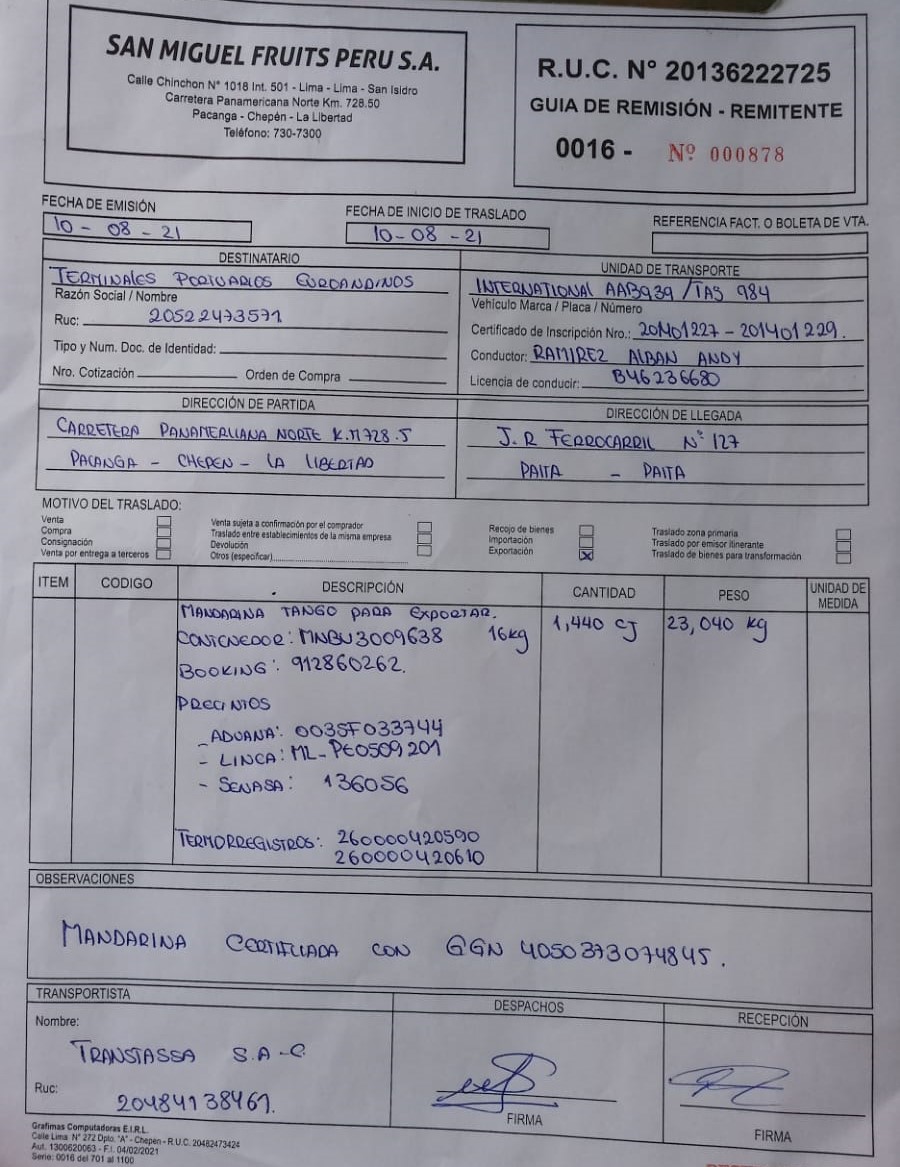 SAN MIGUEL FRUITS PERU S.A.
Calle Chinchon N° 1018 Int. 501 - Lima - Lima - San Isidro
Carretera Panamericana Norte Km. 728.50
Pacanga - Chepén - La Libertad
Teléfono: 730-7300
R.U.C. N° 20136222725
GUIA DE REMISIÓN - REMITENTE
0016 - Nº 000878
FECHA DE EMISIÓN
10 - 08 - 21
FECHA DE INICIO DE TRASLADO
10-08-21
REFERENCIA FACT. O BOLETA DE VTA.
DESTINATARIO
TERMINALES PORTUARIOS EUROANDINOS
Razón Social / Nombre
Ruc: 20522473571
Tipo y Num. Doc. de Identidad:
Nro. Cotización Orden de Compra
UNIDAD DE TRANSPORTE
INTERNATIONAL AAB939 / TAS 984
Vehículo Marca / Placa / Número
Certificado de Inscripción Nro.: 20M01227 - 201401229.
Conductor: RAMIREZ ALBAN ANDY
Licencia de conducir: B46236680
DIRECCIÓN DE PARTIDA
CARRETERA PANAMERICANA NORTE K.M 728.5
PACANGA - CHEPEN - LA LIBERTAD
DIRECCIÓN DE LLEGADA
J.R FERROCARRIL N° 127
PAITA - PAITA
MOTIVO DEL TRASLADO:
Venta
Compra
Consignación
Venta por entrega a terceros
Venta sujeta a confirmación por el comprador
Traslado entre establecimientos de la misma empresa
Devolución
Otros (especificar)
Recojo de bienes
Importación
Exportación X
Traslado zona primaria
Traslado por emisor itinerante
Traslado de bienes para transformación
ITEM CODIGO DESCRIPCIÓN CANTIDAD PESO UNIDAD DE MEDIDA
MANDARINA TANGO PARA EXPORTAR.
CONTENEDOR: MNBU3009638 16kg 1,440 CJ 23,040 kg
BOOKING: 912860262.
PRECINTOS
- ADUANA: 003SF033744
- LINEA: ML-PE0509201
- SENASA: 136056
TERMORREGISTROS: 260000420590
260000420610
OBSERVACIONES
MANDARINA CERTIFICADA CON GGN 4050373074845.
TRANSPORTISTA
Nombre:
TRANSTASSA S.A.C.
Ruc:
20484138461.
DESPACHOS
FIRMA
RECEPCIÓN
FIRMA
Grafimas Computadoras E.I.R.L.
Calle Lima N° 272 Dpto. "A" - Chepen - R.U.C. 20482473424
Aut. 1300620063 - F.I. 04/02/2021
Serie: 0016 del 701 al 1100